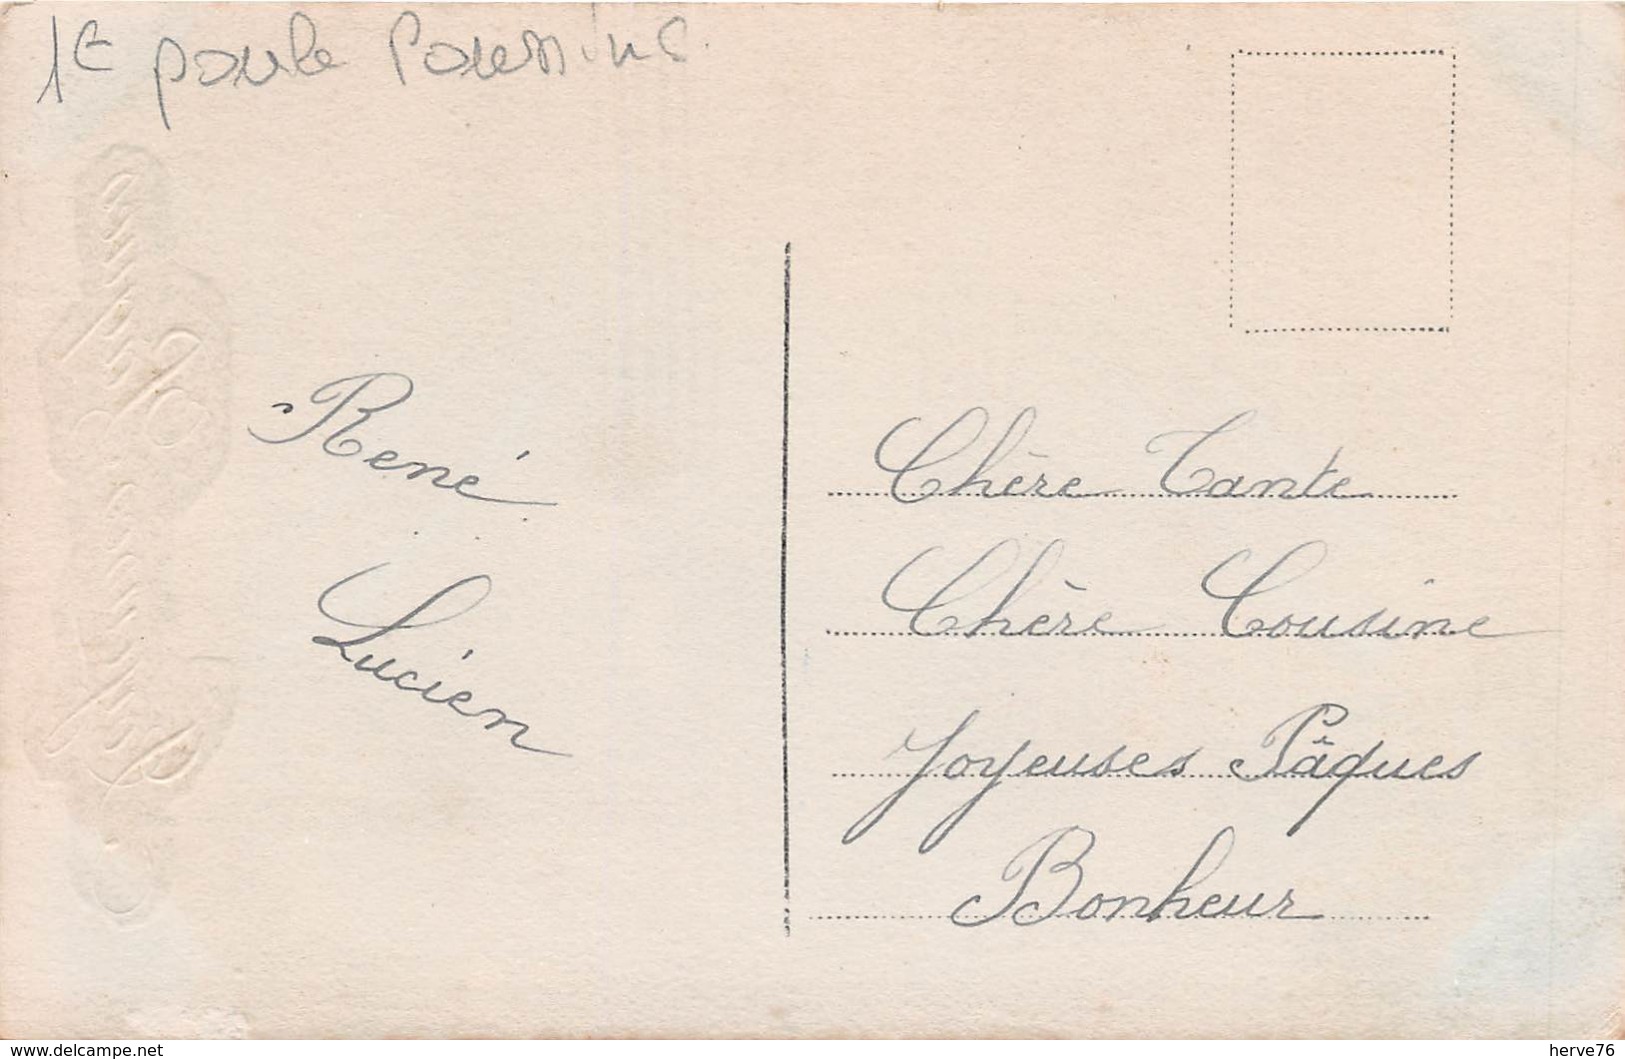 1€ poule Poussins
René
Lucien
Chère Tante
Chère Cousine
Joyeuses Pâques
Bonheur
www.delcampe.net
herve76